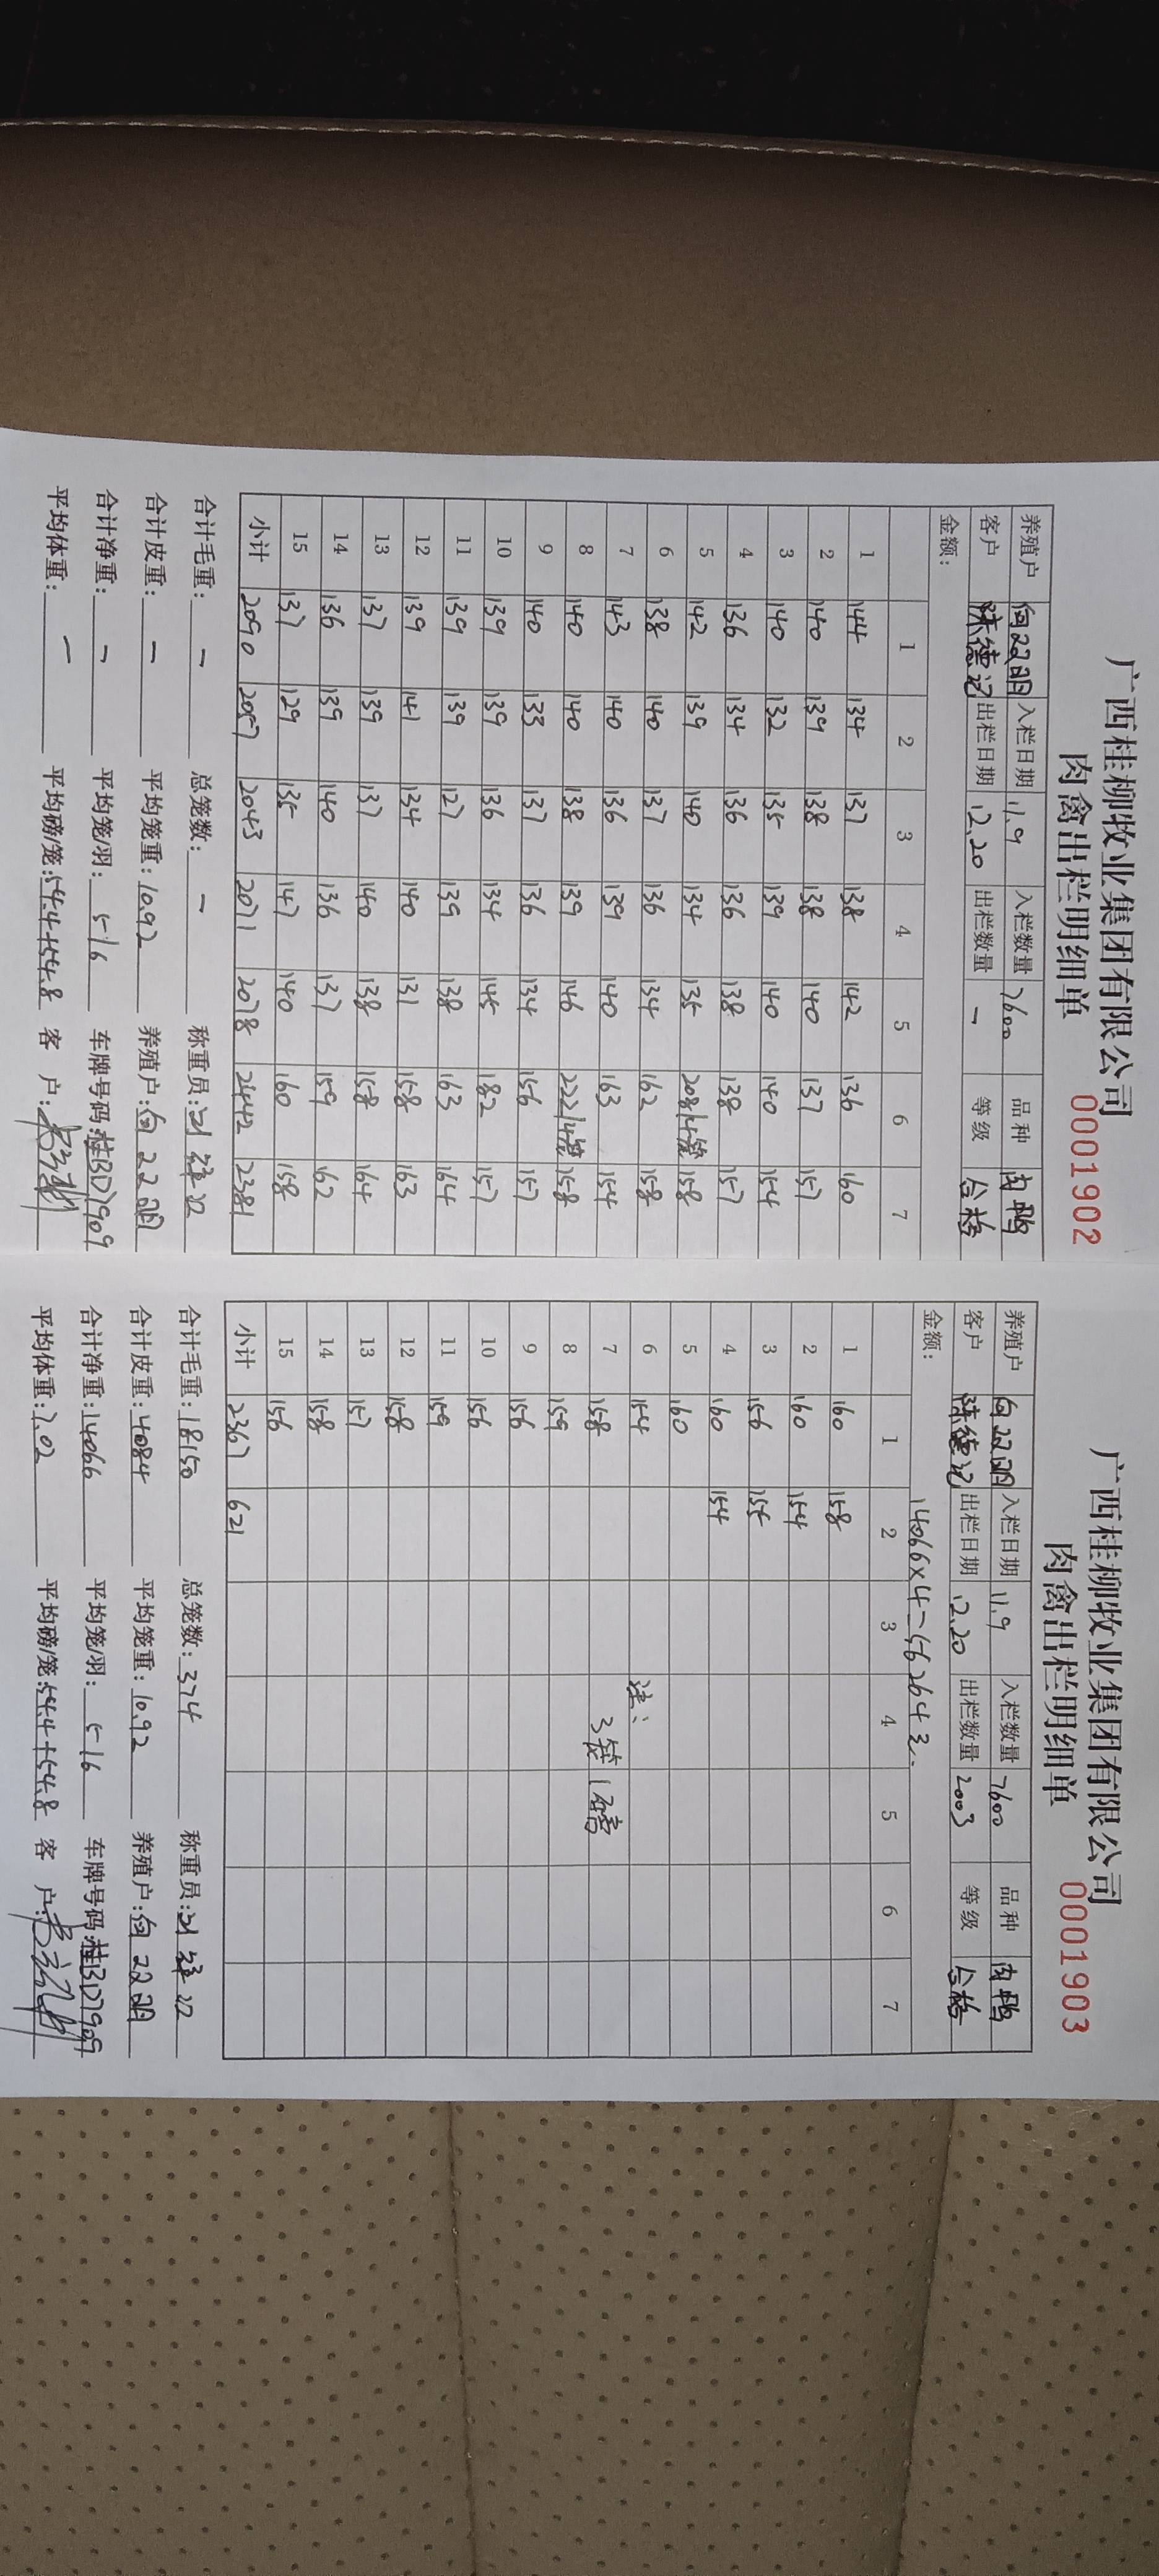 广西桂柳牧业集团有限公司
肉禽出栏明细单 0001902
养殖户 向双明 入栏日期 11.9 入栏数量 7600 品种 肉鸭
客户 陈德记 出栏日期 12.20 出栏数量 — 等级 合格
金额：
1 2 3 4 5 6 7
1 144 134 137 138 142 136 160
2 140 139 138 138 140 137 157
3 140 132 135 139 140 140 154
4 136 134 136 136 138 138 157
5 142 139 140 134 135 208/4笼 158
6 138 140 137 136 134 162 158
7 143 140 136 139 140 163 154
8 140 140 138 139 146 222/4笼 158
9 140 133 137 136 134 156 157
10 139 139 136 134 145 182 157
11 139 139 127 139 138 163 164
12 139 141 134 140 131 158 163
13 137 139 137 140 138 158 164
14 136 139 140 136 137 159 162
15 137 129 135 147 140 160 158
小计 2090 2057 2043 2071 2078 2442 2381
合计毛重：— 总笼数：— 称重员：
合计皮重：— 平均笼重：10.92 养殖户：向双明
合计净重：— 平均笼/羽：5-16 车牌号码：桂BD7909
平均体重：— 平均磅/笼：54.4+54.8 客 户：
广西桂柳牧业集团有限公司
肉禽出栏明细单 0001903
养殖户 向双明 入栏日期 11.9 入栏数量 7600 品种 肉鸭
客户 陈德记 出栏日期 12.20 出栏数量 2003 等级 合格
金额： 14066×4=56264元.
1 2 3 4 5 6 7
1 160 158
2 160 154
3 156 155
4 160 154
5 160
6 154 注：
7 158 3笼1磅
8 159
9 156
10 156
11 159
12 158
13 157
14 158
15 156
小计 2367 621
合计毛重：18150 总笼数：374 称重员：
合计皮重：4084 平均笼重：10.92 养殖户：向双明
合计净重：14066 平均笼/羽：5-16 车牌号码：桂BD7909
平均体重：7.02 平均磅/笼：54.4+54.8 客 户：